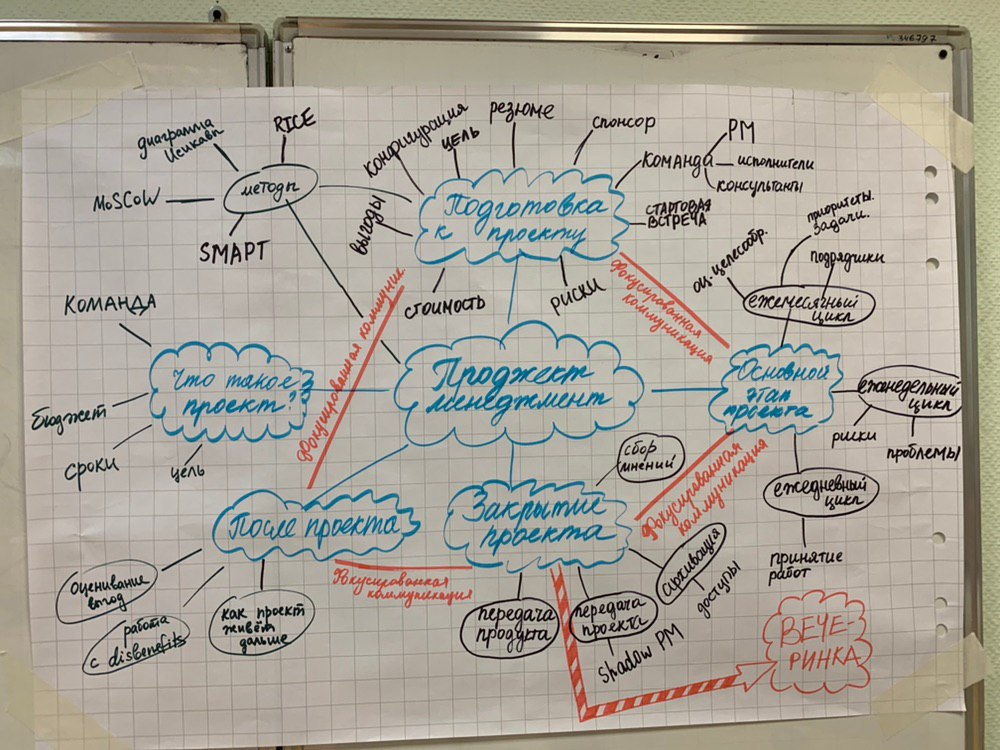 № 346797
диаграмма
Исикавы
RICE
MoSCoW
методы
SMAPT
конфигурация
цель
резюме
спонсор
выгоды
Подготовка
к проекту
команда
PM
исполнители
консультанты
стартовая
встреча
стоимость
риски
приоритеты.
задачи.
оц. целесообр.
подрядчики
ежемесячный
цикл
Фокусированная
коммуникация
фокусированная коммуник.
КОМАНДА
Что такое
проект?
бюджет
сроки
цель
Проджект
менеджмент
Основной
этап
проекта
еженедельный
цикл
риски
проблемы
ежедневный
цикл
принятие
работ
сбор
мнений
Фокусированная
коммуникация
После проекта
Закрытие
проекта
Фокусированная
коммуникация
оценивание
выгод
работа
с disbenefits
как проект
живёт
дальше
передача
продукта
передача
проекта
Shadow PM
архивация
доступы
ВЕЧЕ-
РИНКА